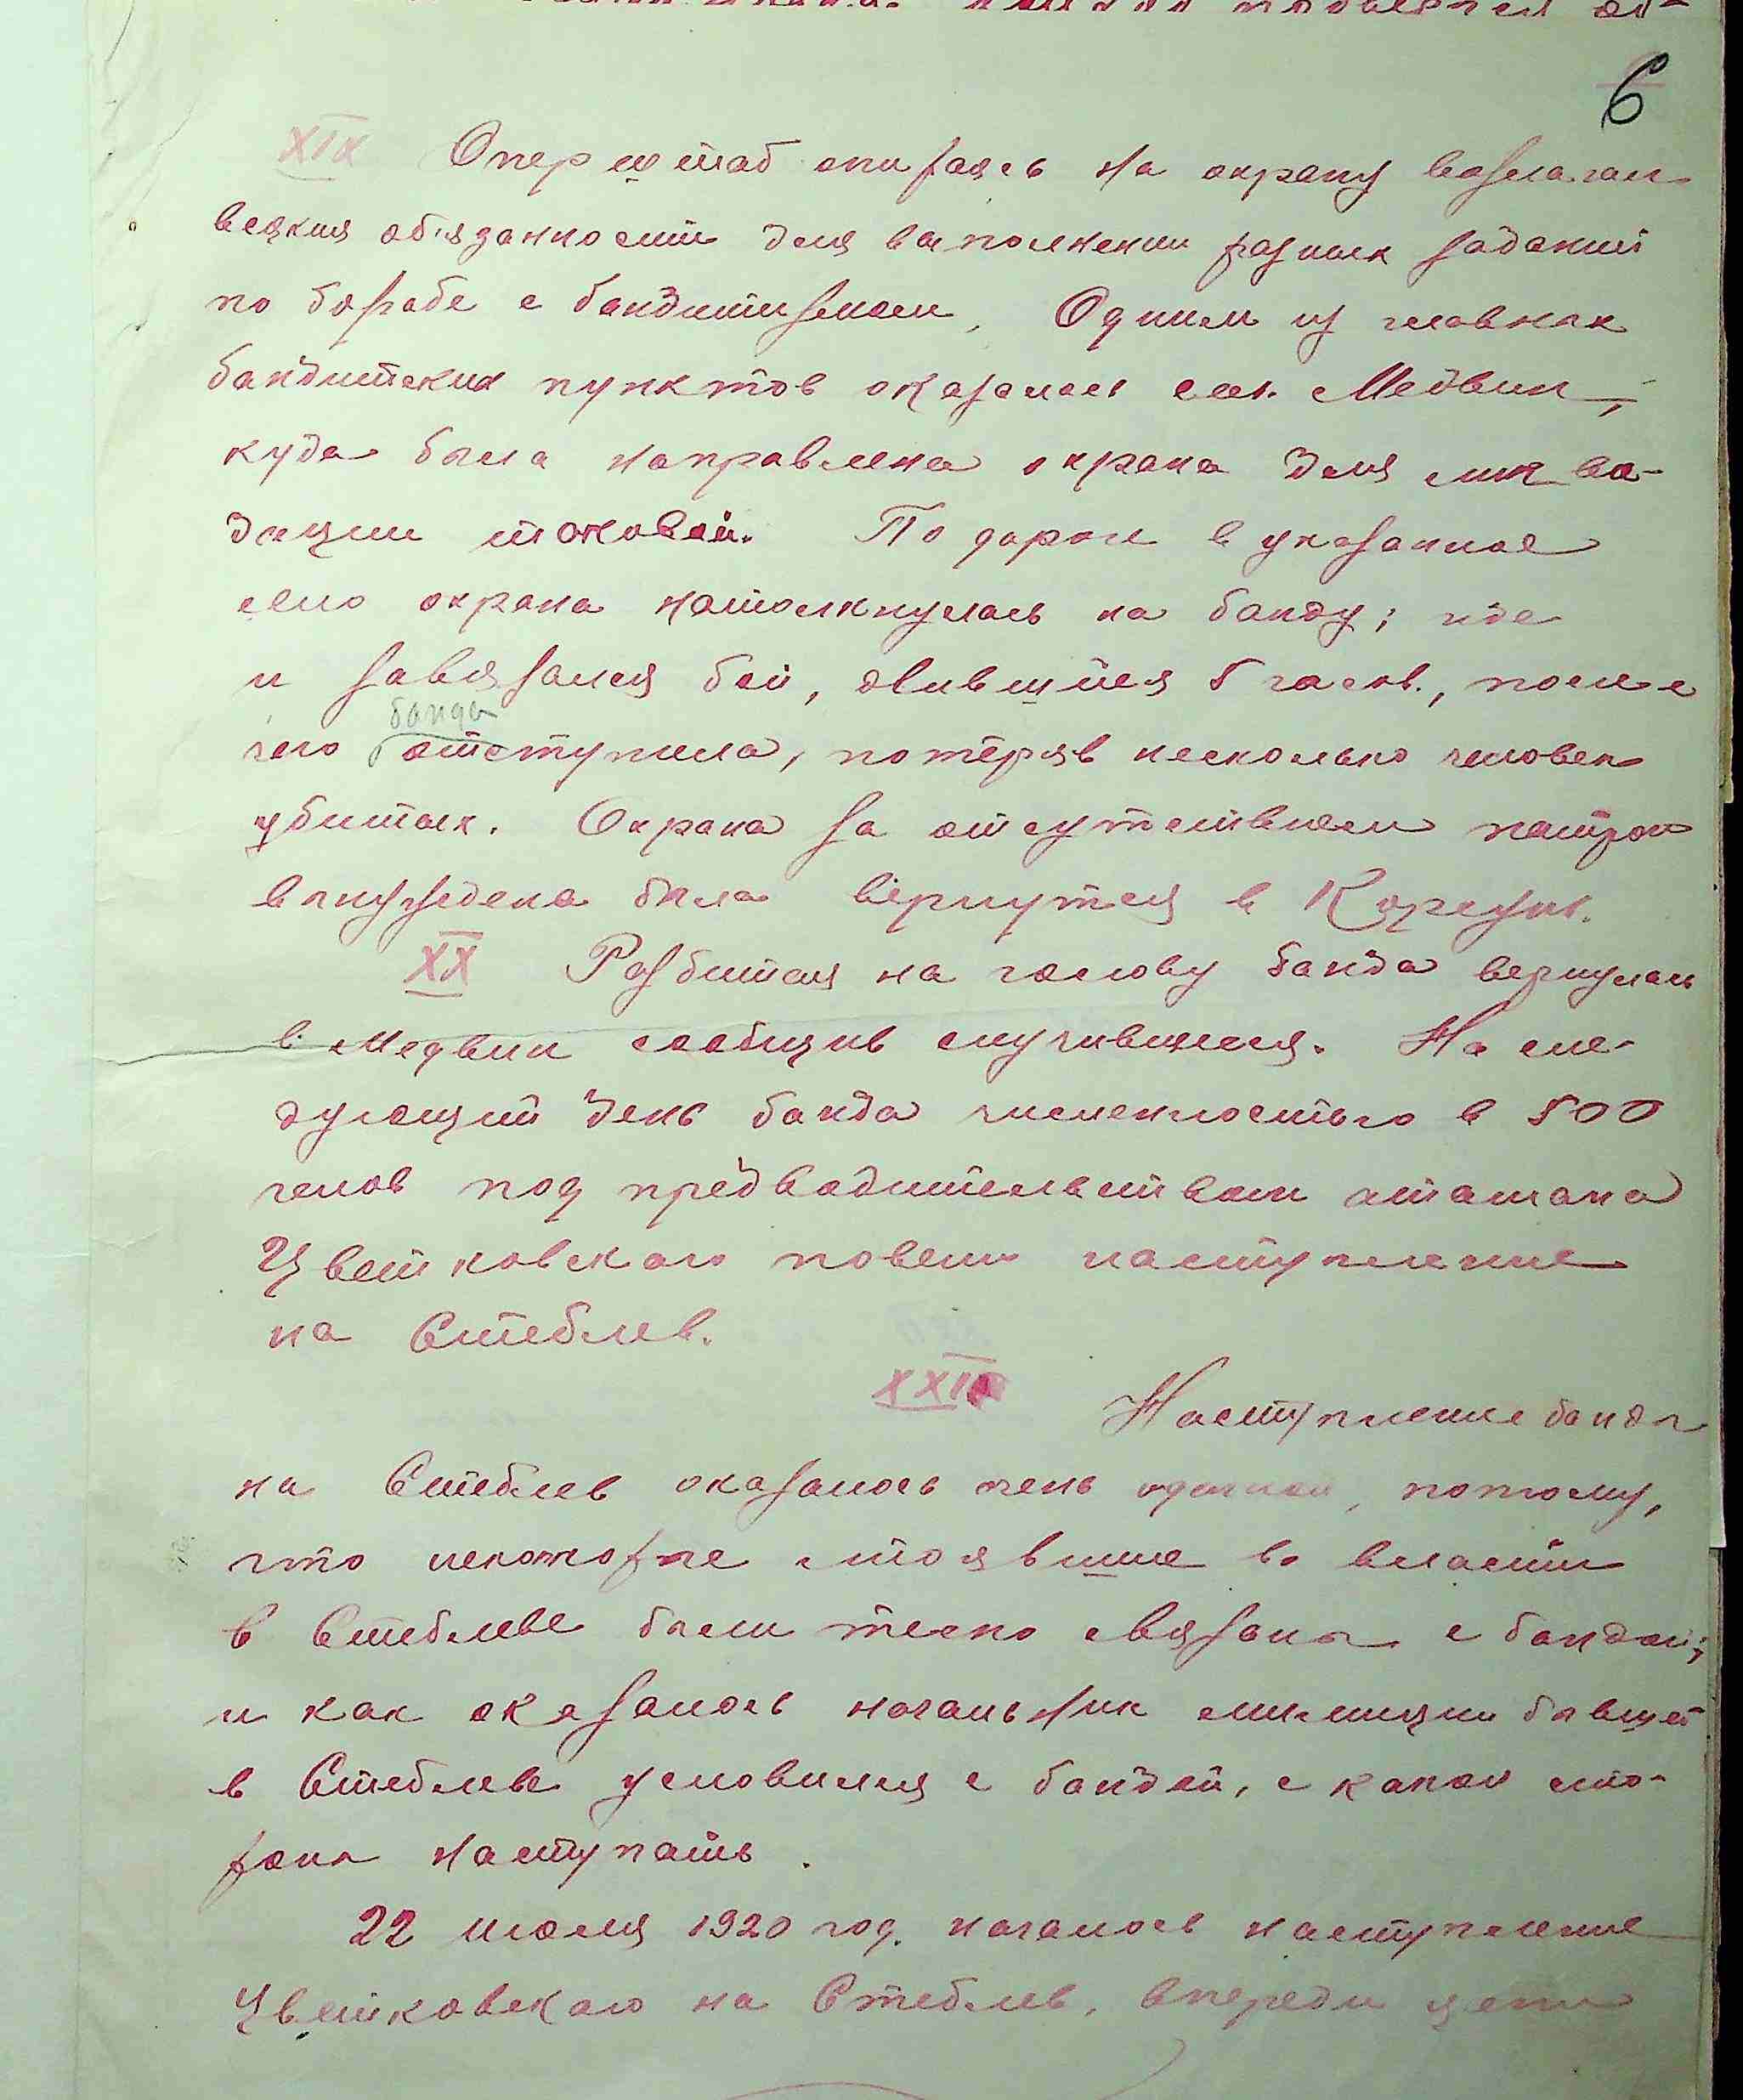 6
XIX Опер штаб опираясь на охрану возлагал
всякия об'язанности для выполнении разных заданий
по борьбе с бандитизмом, Одним из главных
бандитских пунктов оказалась сел. Медвин,
куда была направлена охрана для ликва-
дации таковой. По дороге в указанное
село охрана натолкнулась на банду; где
и завязался бой, длившийся 5 часов., после
банда
чего отступила, потеряв несколько человек
убитых. Охрана за отсутствием патрон
вынуждена была вернутся в Корсунь.
XX Разбитая на голову банда вернулась
в Медвин сообщив случившееся. На сле-
дующий день банда численностью в 500
челов под предводительством атамана
Цветковского повели наступление
на Стеблев.
XXI Наступление банды
на Стеблев оказалось очень удачной, потому,
что некоторые стоявшие во власти
в Стеблеве были тесно связаны с бандой;
и как оказалось начальник милиции бывшей
в Стеблеве условился с бандой, с какой сто-
роны наступать.
22 июля 1920 год. началось наступление
Цветковского на Стеблев, впереди цепи